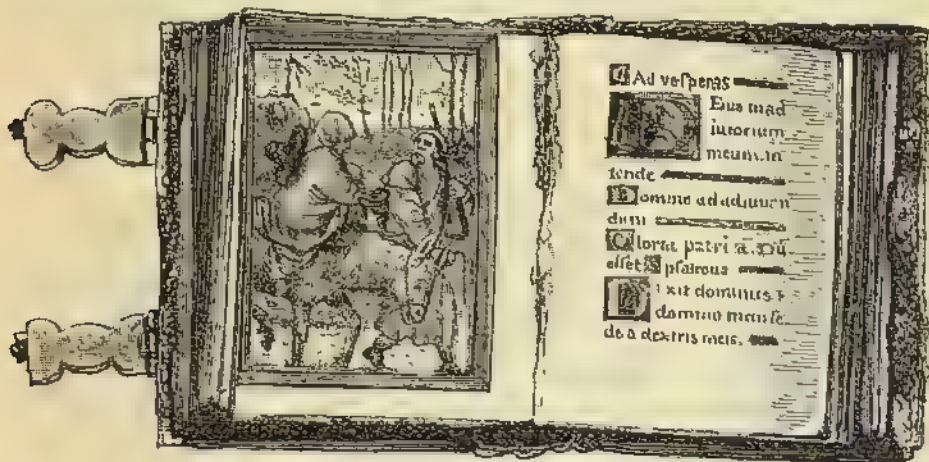 Ad vesperas
Eus in ad
iutorium
meum in
tende
Domine ad adiuuan
dum
Gloria patri
psalmus
Dixit dominus
domino meo se
de a dextris meis.